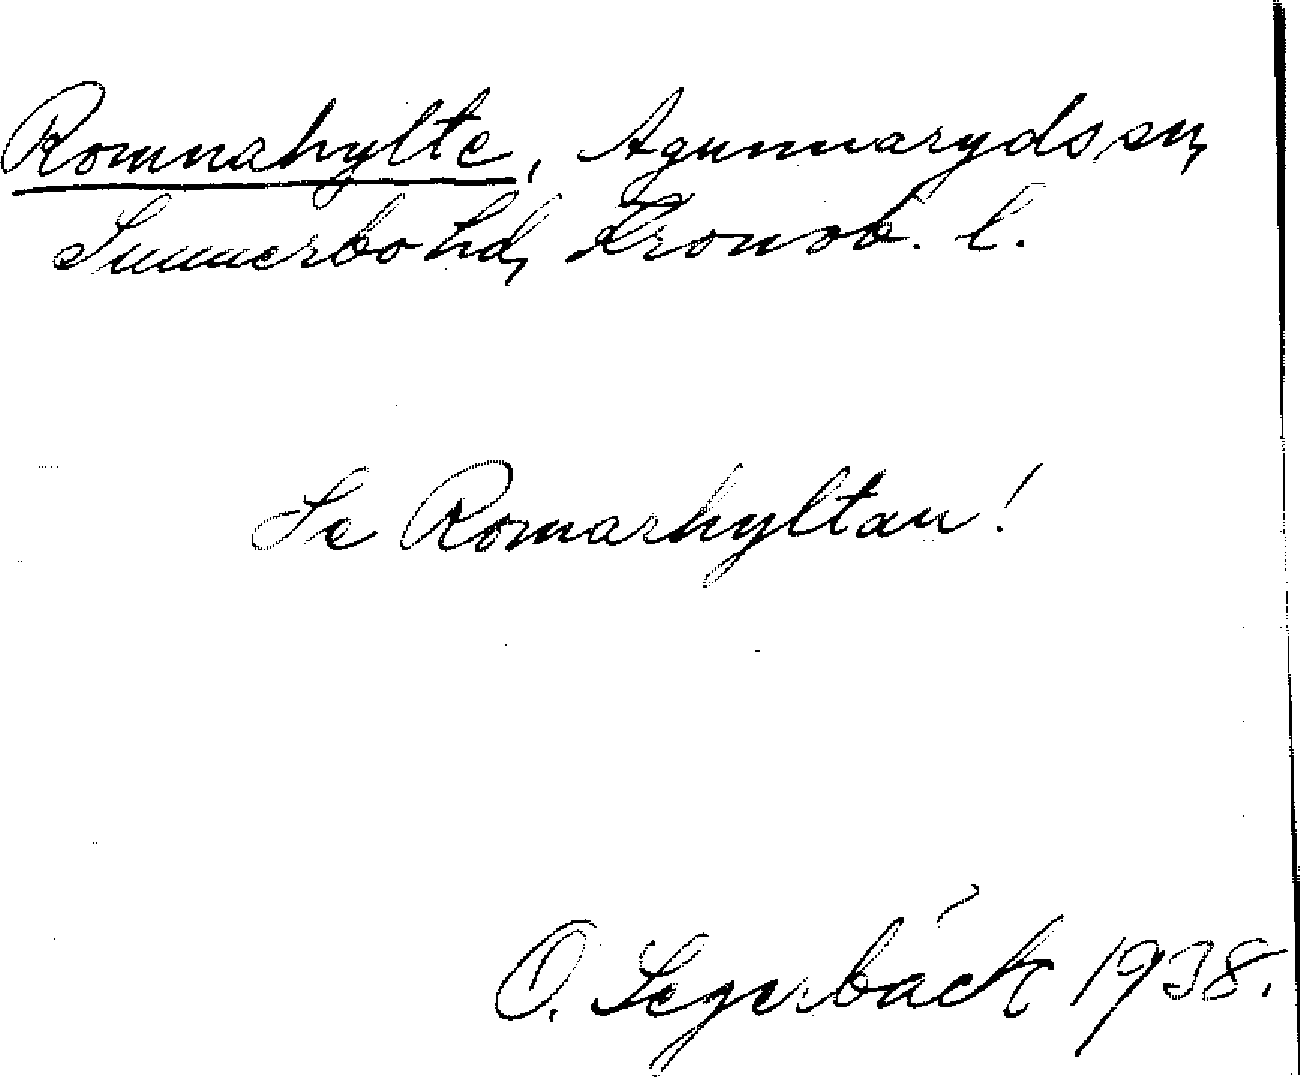 Romnahylte, Agunnaryds sn,
Sunnerbo hd, Kronob. l.
Se Romarhyltan!
O. Segerbäck 1938.